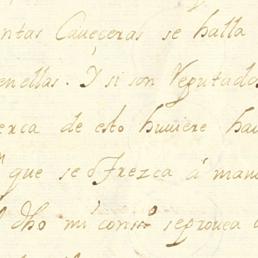 ntas Caveceras se halla
enellas. Y si son Reputados
erca de esto huviere hav
que se ofrezca á man
dho mi cons.º se provea